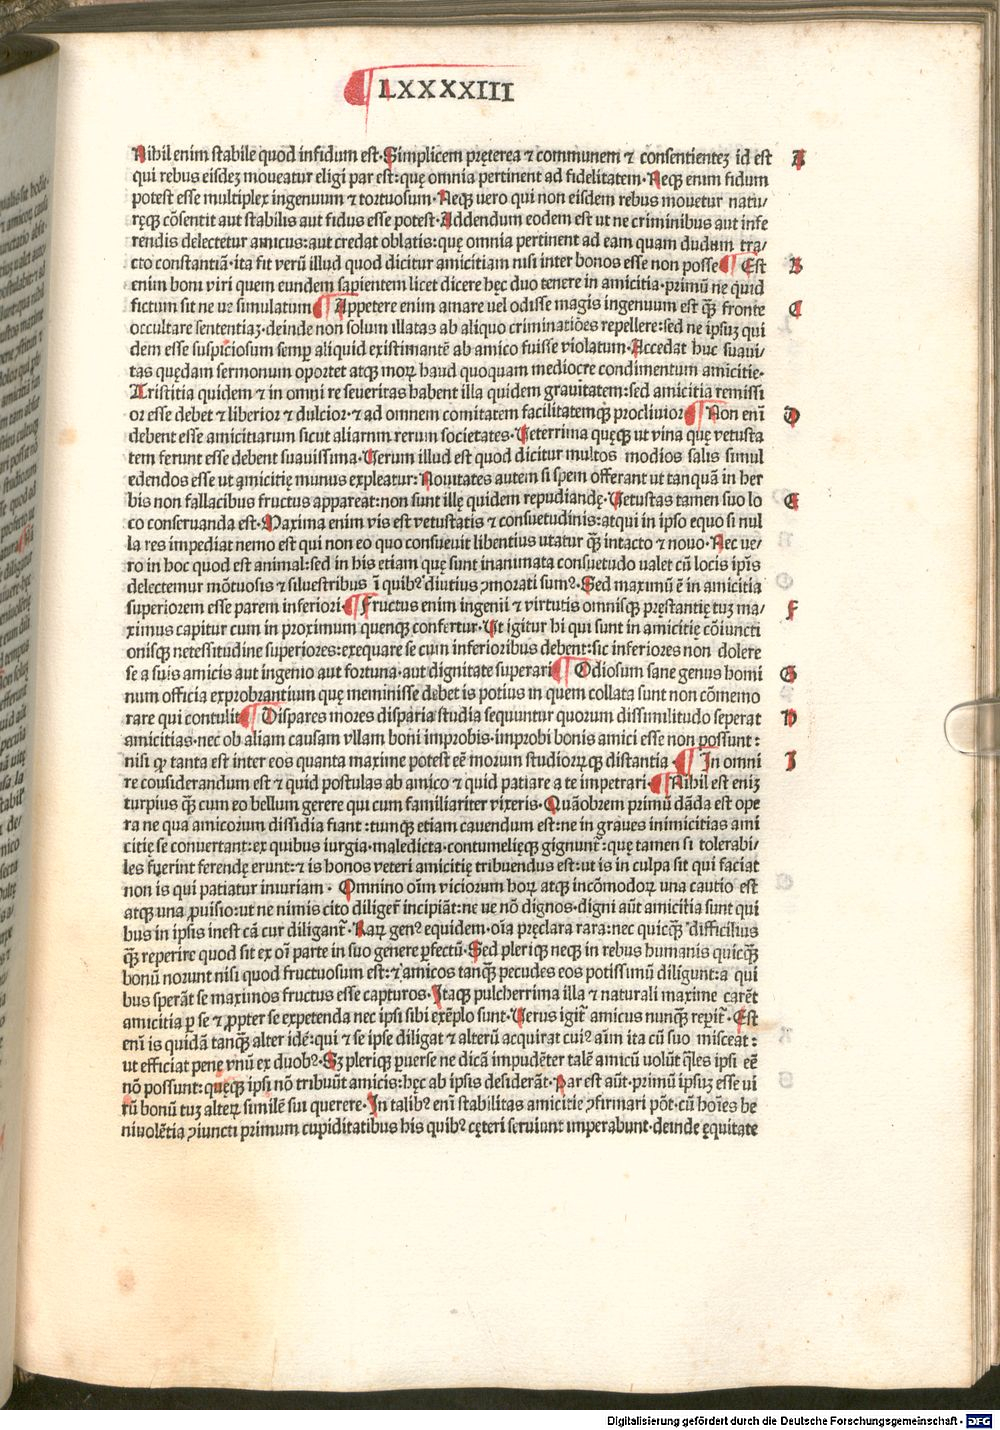 LXXXXIII
Nihil enim stabile quod infidum est·Simplicem pręterea ⁊ communem ⁊ consentientez id est A
qui rebus eisdez moueatur eligi par est:quę omnia pertinent ad fidelitatem·Neqꝫ enim fidum
potest esse multiplex ingenuum ⁊ tortuosum·Neqꝫ uero qui non eisdem rebus mouetur natu/
ręqꝫ cōsentit aut stabilis aut fidus esse potest·Addendum eodem est ut ne criminibus aut infe
rendis delectetur amicus:aut credat oblatis:quę omnia pertinent ad eam quam dudum tra/
cto constantiā·ita fit verū illud quod dicitur amicitiam nisi inter bonos esse non posse ¶ Est B
enim boni viri quem eundem sapientem licet dicere hęc duo tenere in amicitia·primū ne quid
fictum sit ne ve simulatum ¶ Appetere enim amare vel odisse magis ingenuum est qꝫ̄ fronte C
occultare sententiaz·deinde non solum illatas ab aliquo criminatiōes repellere:sed ne ipsuz qui
dem esse suspiciosum semꝑ aliquid existimantē ab amico fuisse violatum·Accedat huc suaui/
tas quędam sermonum oportet atqꝫ moꝝ haud quoquam mediocre condimentum amicitie·
Tristitia quidem ⁊ in omni re seueritas habent illa quidem grauitatem:sed amicitia remissi
or esse debet ⁊ liberior ⁊ dulcior·⁊ ad omnem comitatem facilitatemqꝫ procliuior ¶ Non eni D
debent esse amicitiarum sicut aliarum rerum societates·Veterrima quęqꝫ ut vina quę vetusta
tem ferunt esse debent suauissima·Verum illud est quod dicitur multos modios salis simul
edendos esse ut amicitię munus expleatur:Nouitates autem si spem offerant ut tanquā in her
bis non fallacibus fructus appareat:non sunt illę quidem repudiandę·Vetustas tamen suo lo E
co conseruanda est·Maxima enim vis est vetustatis ⁊ consuetudinis:atqui in ipso equo si nul
la res impediat nemo est qui non eo quo consueuit libentius utatur qꝫ̄ intacto ⁊ nouo·Nec ve/
ro in hoc quod est animal:sed in his etiam quę sunt inanimata consuetudo ualet cū locis ip̄is
delectemur mōtuosis ⁊ siluestribus ī quibꝰ diutius ꝯmorati sumꝰ·Sed maximū ē in amicitia
superiorem esse parem inferiori ¶ Fructus enim ingenii ⁊ virtutis omnisqꝫ pręstantię tuz ma/ F
ximus capitur cum in proximum quenqꝫ confertur·Ut igitur hi qui sunt in amicitię cōiuncti
onisqꝫ netessitudine superiores:exequare se cum inferioribus debent:sic inferiores non dolere
se a suis amicis aut ingenio aut fortuna·aut dignitate superari ¶ Odiosum sane genus homi G
num officia exprobrantium quę meminisse debet is potius in quem collata sunt non cōmemo
rare qui contulit ¶ Dispares mores disparia studia sequuntur quorum dissimilitudo seperat H
amicitias·nec ob aliam causam vllam boni improbis·improbi bonis amici esse non possunt:
nisi qꝫ tanta est inter eos quanta maxime potest eē morum studioꝝqꝫ distantia· ¶ In omni I
re considerandum est ⁊ quid postulas ab amico ⁊ quid patiare a te impetrari· ¶ Nihil est eniz
turpius qꝫ̄ cum eo bellum gerere qui cum familiariter vixeris·Quāobrem primū dāda est ope
ra ne qua amicorum dissidia fiant:tumqꝫ etiam cauendum est:ne in graues inimicitias ami
citię se conuertant:ex quibus iurgia·maledicta·contumelięqꝫ gignunt̄:quę tamen si tolerabi/
les fuerint ferendę erunt:⁊ is honos veteri amicitię tribuendus est:ut is in culpa sit qui faciat
non is qui patiatur iniuriam· Omnino oīm viciorum hoꝝ atqꝫ incōmodoꝝ una cautio est
atqꝫ una ꝓuisio:ut ne nimis cito diliger̄ incipiāt:ne ve nō dignos·digni aūt amicitia sunt qui
bus in ipsis inest cā cur diligant̄·Raꝝ genꝰ equidem·oīa pręclara rara:nec quicqꝫ̄ difficilius
qꝫ̄ reperire quod sit ex oī parte in suo genere ꝑfectū·Sed pleriqꝫ neqꝫ in rebus humanis quicqꝫ̄
bonū norunt nisi quod fructuosum est:⁊ amicos tanqꝫ̄ pecudes eos potissimū diligunt:a qui
bus sperāt se maximos fructus esse capturos·Itaqꝫ pulcherrima illa ⁊ naturali maxime carēt
amicitia ꝑ se ⁊ ꝓpter se expetenda nec ipsi sibi exēplo sunt·Verus igit̄ amicus nunqꝫ̄ reꝑit̄·Est
enī is quidā tanqꝫ̄ alter idē:qui ⁊ se ipse diligat ⁊ alterū acquirat cuiꝰ aīm ita cū suo misceat:
ut efficiat pene vnū ex duobꝰ·Sꝫ pleriqꝫ ꝑuerse ne dicā impudēter talē amicū volūt q̄les ipsi eē
nō possunt:quęqꝫ ipsi nō tribuūt amicis:hęc ab ipsis desiderāt·Par est aūt·primū ipsuz esse ui
rū bonū tuz alteꝝ similē sui querere·In talibꝰ enī stabilitas amicitie ꝯfirmari pōt·cū hoīes be
niuolētia ꝯiuncti primum cupiditatibus his quibꝰ cęteri seruiunt imperabunt·deinde ęquitate
Digitalisierung gefördert durch die Deutsche Forschungsgemeinschaft - DFG